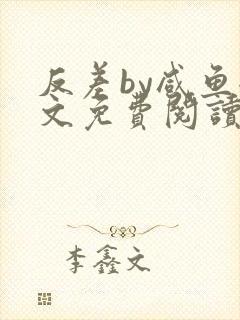 反差by咸鱼
文免费閱讀
李鑫文